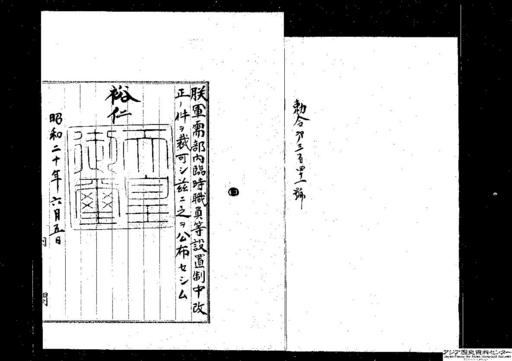 勅令第三百四十一號
朕軍需部内臨時職員等設置制中改
正ノ件ヲ裁可シ茲ニ之ヲ公布セシム
裕仁
天皇
御璽
昭和二十年六月五日
内閣
アジア歴史資料センター
Japan Center for Asian Historical Records